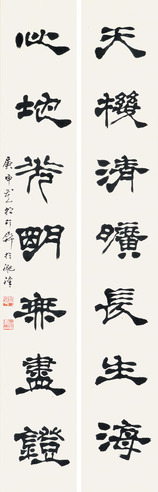 天機清曠長生海
心地光明無盡鐙
庚申